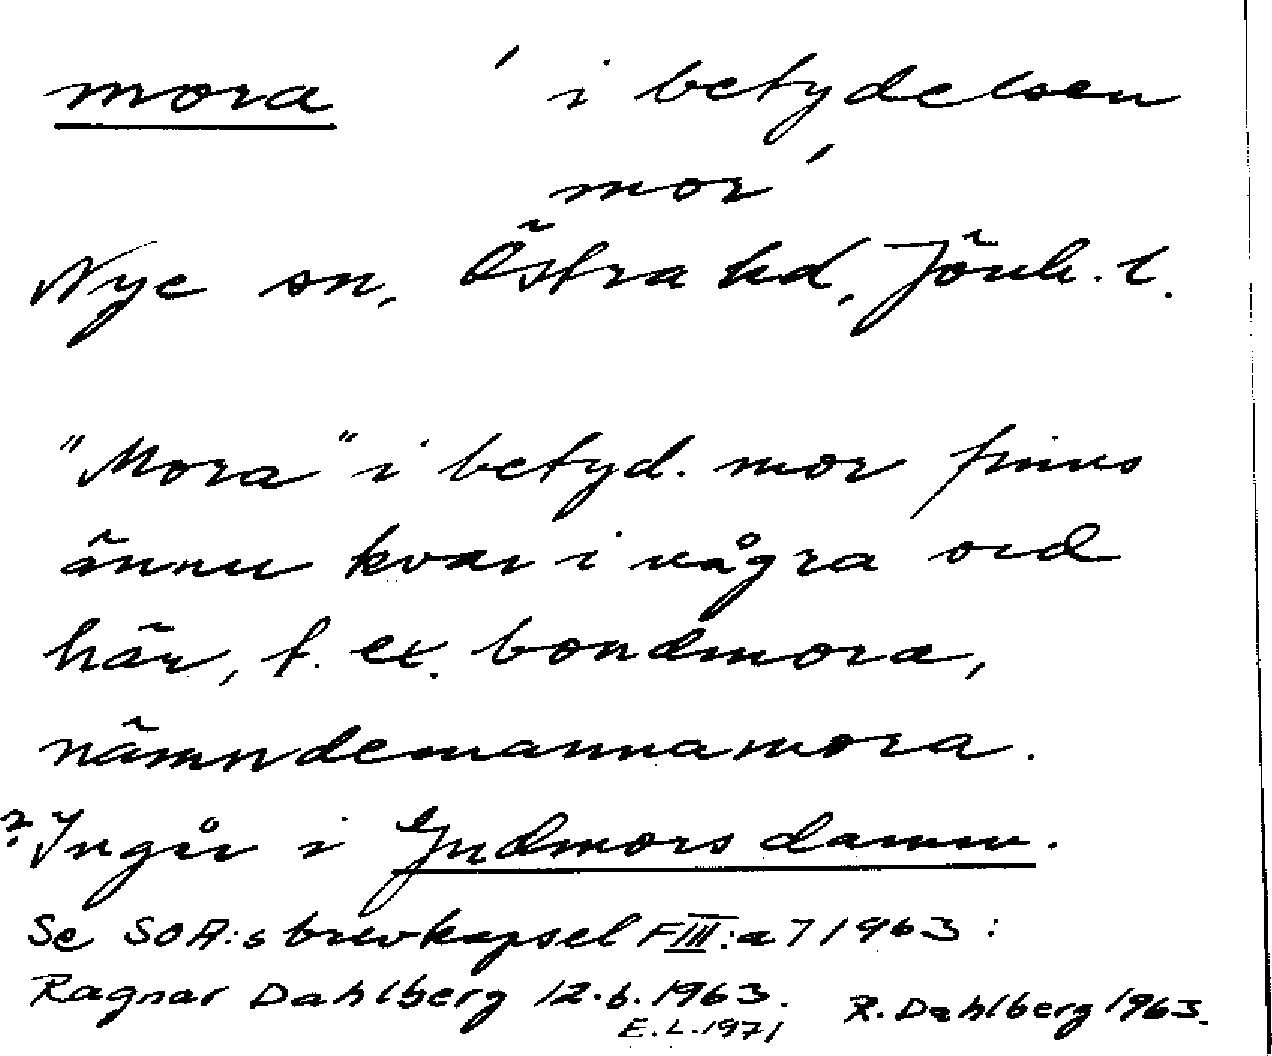 mora ' i betydelsen
mor'
Nye sn, Östra hd, Jönk. l.
"Mora" i betyd. mor finns
ännu kvar i några ord
här, t. ex. bondmora,
nämndemannamora.
? Ingår i Gudmors damm.
Se SOA:s brevkapsel FIII:a 7 1963:
Ragnar Dahlberg 12.6.1963. R. Dahlberg 1963.
E.L. 1971